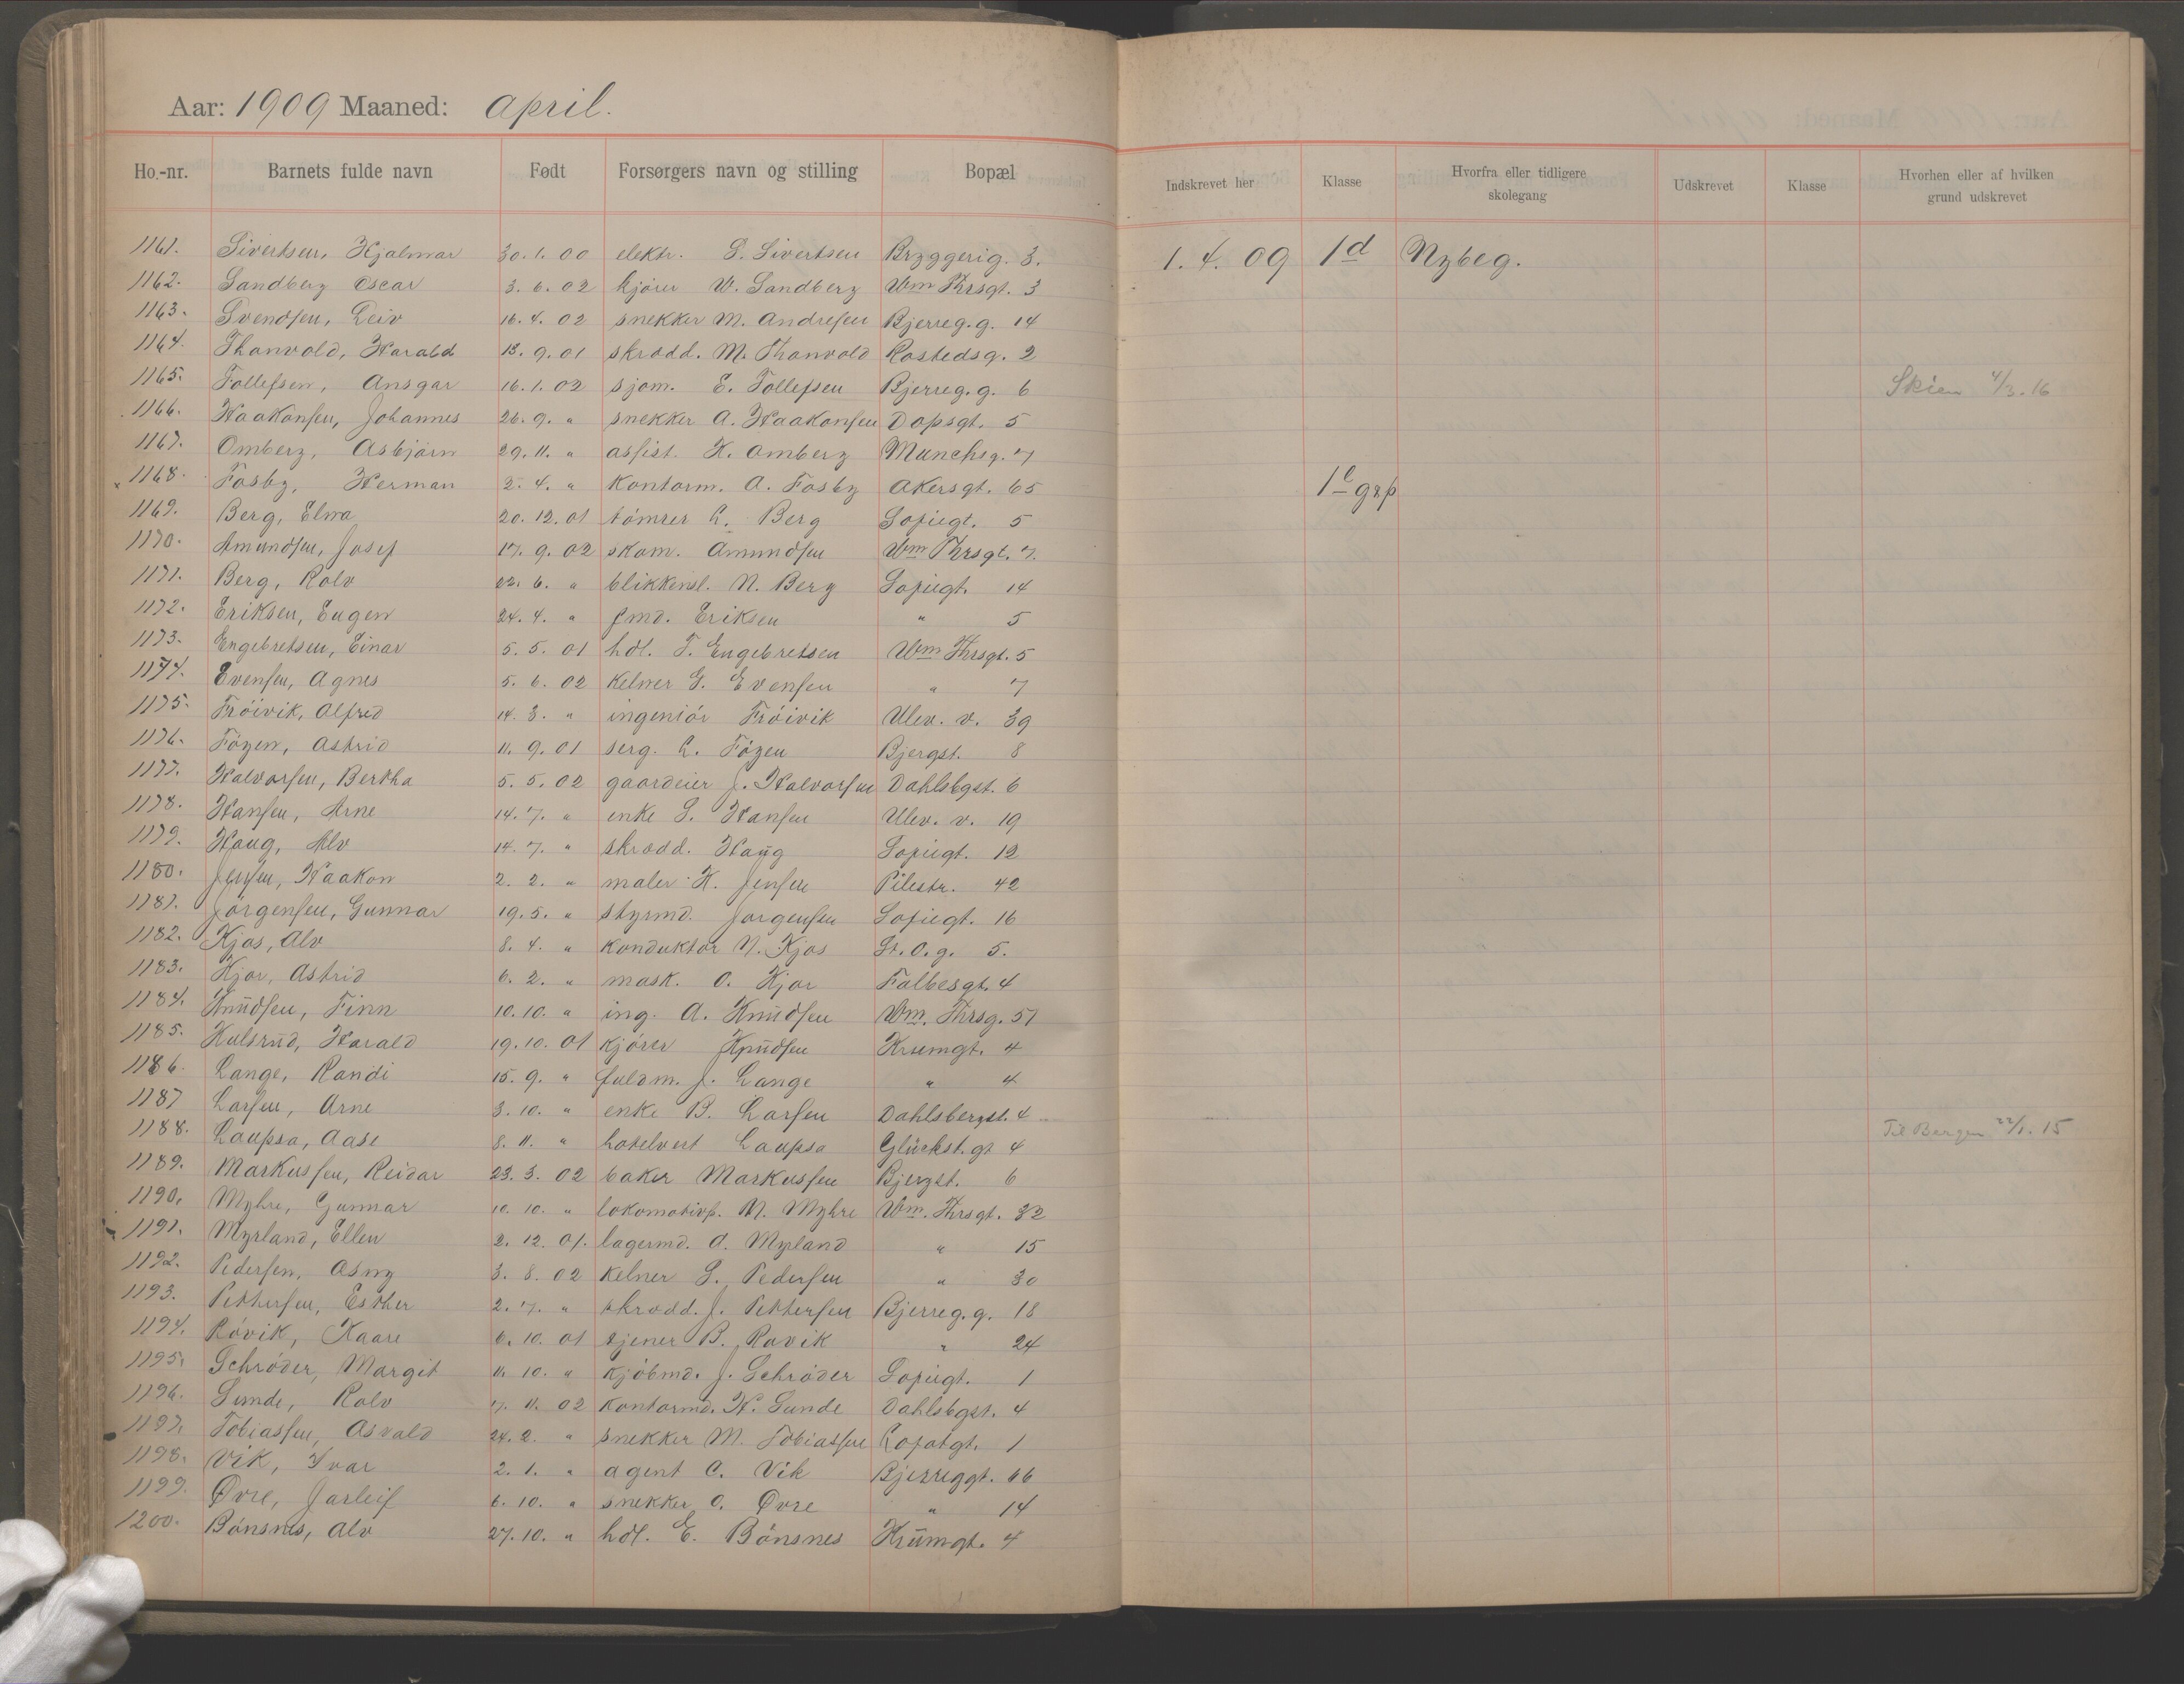 Aar: 1909 Maaned: April.
Ho.-nr. Barnets fulde navn Født Forsørgers navn og stilling Bopæl Indskrevet her Klasse Hvorfra eller tidligere skolegang Udskrevet Klasse Hvorhen eller af hvilken grund udskrevet
1161. Sivertsen, Hjalmar 30.1.00 elektr. S. Sivertsen Bryggerig. 3. 1.4.09 1d Nybeg.
1162. Sandberg Oscar 3.6.02 kjører W. Sandberg Wm Thrsgt. 3
1163. Svendsen, Leiv 16.4.02 snekker M. Andresen Bjerreg.g. 14
1164. Thorvold, Harald 13.9.01 skrædd. M. Thorvold Rostedsg. 2
1165. Tollefsen, Ansgar 16.1.02 sjøm. E. Tollefsen Bjerreg.g. 6 Skien 4/3.16
1166. Haakonsen, Johannes 26.9. " snekker A. Haakonsen Dopsgt. 5
1167. Omberg, Asbjörn 29.11. " assist. K. Omberg Munchsg. 7
1168. Fosby, Herman 2.4. " Kontorm. A. Fosby Akersgt. 65 1e grp
1169. Berg, Elna 20.12.01 tömrer L. Berg Sofiegt. 5
1170. Amundsen, Josef 17.9.02 skom. Amundsen Wm Thrsgt. 7.
1171. Berg, Rolv 22.6. " blikkensl. N. Berg Sofiegt. 14
1172. Eriksen, Eugen 24.4. " fmd. Eriksen " 5
1173. Engebretsen, Einar 5.5.01 hdl. F. Engebretsen Wm Thrsgt. 5
1174. Evensen, Agnes 5.6.02 Kelner G. Evensen " 7
1175. Fröivik, Alfred 14.3. " ingeniör Fröivik Ulev. v. 39
1176. Föyen, Astrid 11.9.01 serg. L. Föyen Bjergst. 8
1177. Halvorsen, Bertha 5.5.02 gaardeier J. Halvorsen Dahlsbgst. 6
1178. Hansen, Arne 14.7. " enke S. Hansen Ulev. v. 19
1179. Haug, Alv 14.7. " skrædd. Haug Sofiegt. 12
1180. Jensen, Haakon 2.2. " maler K. Jensen Pilestr. 42
1181. Jörgensen, Gunnar 19.5. " styrmd. Jorgensen Sofiegt. 16
1182. Kjos, Alv 8.4. " Konduktör N. Kjos St.O.g. 5.
1183. Kjor, Astrid 6.2. " mask. O. Kjor Falbesgt. 4
1184. Knudsen, Finn 10.10. " ing. A. Knudsen Wm. Thrsg. 51
1185. Hulsrud, Harald 19.10.01 Kjörer Knudsen Krumgt. 4
1186. Lange, Randi 15.9. " fuldm. J. Lange " 4
1187 Larsen, Arne 3.10. " enke B. Larsen Dahlsbergst. 4
1188. Laupsa, Aase 8.11. " hotelvert Laupsa Glückst.gt 4 Til Bergen 22/1.15
1189. Markussen, Reidar 23.3.02 baker Markussen Bjergst. 6
1190. Myhre, Gunnar 10.10. " lokomotivf. N. Myhre Wm. Thrsgt. 32
1191. Myrland, Ellen 2.12.01. lagermd. O. Myrland " 15
1192. Pedersen, Asny 3.8.02 Kelner S. Pedersen " 30
1193. Pettersen, Esther 2.7. " skrædd. J. Pettersen Bjerreg.g. 18
1194. Rövik, Kaare 6.10.01 tjener B. Rovik " 24
1195. Schröder, Margit 11.10. " Kjöbmd. J. Schröder Sofiegt. 1
1196. Sunde, Rolv 7.11.02 Kontormd. H. Sunde Dahlsbgst. 4
1197. Tobiassen, Osvald 24.2. " snekker M. Tobiassen Lofotgt. 1
1198. Vik, Ivar 2.1. " agent C. Vik Bjerreggt. 46
1199. Øvre, Jarleif 6.10. " snekker O. Øvre " 14
1200. Bönsnes, Alv 27.10. " hdl. E. Bönsnes Krumgt. 4